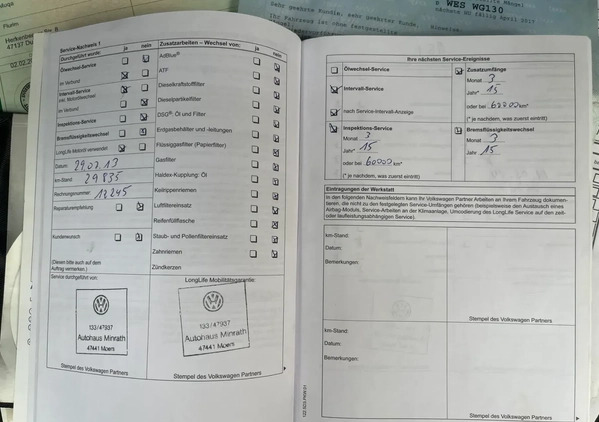 Herkenber
47137 Du
02.02.2
Sehr geehrte Kundin, sehr geehrter Kunde,
Ihr Fahrzeug ist ohne festgestellte
WES WG130
nächste HU fällig April 2017
Service-Nachweis 1
Durchgeführt wurde: ja nein
Ölwechsel-Service
im Verbund
Intervall-Service
inkl. Motorölwechsel
im Verbund
Inspektions-Service
Bremsflüssigkeitswechsel
LongLife Motoröl verwendet
Datum: 29.07.13
km-Stand: 29835
Rechnungsnummer: 12245
Reparaturempfehlung: ja nein
Kundenwunsch: ja nein
(Diesen bitte auch auf dem
Auftrag vermerken.)
Service durchgeführt von:
133/47937
Autohaus Minrath
47441 Moers
Stempel des Volkswagen Partners
Zusatzarbeiten – Wechsel von: ja nein
AdBlue®
ATF
Dieselkraftstofffilter
Dieselpartikelfilter
DSG®: Öl und Filter
Erdgasbehälter und -leitungen
Flüssiggasfilter (Papierfilter)
Gasfilter
Haldex-Kupplung: Öl
Keilrippenriemen
Luftfiltereinsatz
Reifenfüllflasche
Staub- und Pollenfiltereinsatz
Zahnriemen
Zündkerzen
LongLife Mobilitätsgarantie:
133/47937
Autohaus Minrath
47441 Moers
Stempel des Volkswagen Partners
Ihre nächsten Service-Ereignisse
Ölwechsel-Service
Intervall-Service
nach Service-Intervall-Anzeige
Zusatzumfänge
Monat 3
Jahr* 15
oder bei 60000 km*
(* je nachdem, was zuerst eintritt)
Inspektions-Service
Monat 3
Jahr* 15
oder bei 60000 km*
(* je nachdem, was zuerst eintritt)
Bremsflüssigkeitswechsel
Monat 3
Jahr 15
Eintragungen der Werkstatt
In den folgenden Nachweisfeldern kann Ihr Volkswagen Partner Arbeiten an Ihrem Fahrzeug dokumentieren,
die nicht zu den festgelegten Service-Umfängen gehören (beispielsweise den Austausch eines
Airbag-Moduls, Service-Arbeiten an der Klimaanlage, Umcodierung des LongLife Service auf den zeit-
oder laufleistungsabhängigen Service).
km-Stand:
Datum:
Bemerkungen:
Stempel des Volkswagen Partners
km-Stand:
Datum:
Bemerkungen:
Stempel des Volkswagen Partners